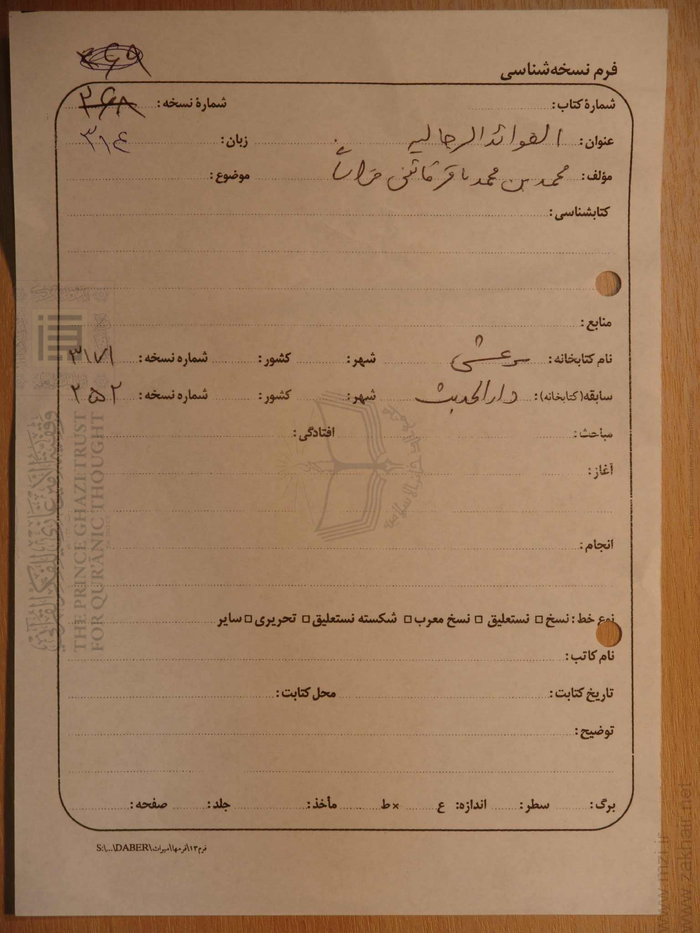 ۳۶۹
فرم نسخه‌شناسی
شمارهٔ کتاب: شمارهٔ نسخه: ۲۶۸
عنوان: الفوائد الرجالیه زبان: ۳۱۴
مؤلف: محمد بن محمد باقر قائنی موضوع:
کتابشناسی:
منابع:
نام کتابخانه: مرعشی شهر: کشور: شماره نسخه: ۳۱۷۱
سابقه(کتابخانه): دارالحدیث شهر: کشور: شماره نسخه: ۲۵۲
مباحث: افتادگی:
آغاز:
انجام:
نوع خط: نسخ □ نستعلیق □ نسخ معرب □ شکسته نستعلیق □ تحریری □ سایر
نام کاتب:
تاریخ کتابت: محل کتابت:
توضیح:
برگ: سطر: اندازه: ع × ط مأخذ: جلد: صفحه:
فرم۱۳\فرمها\میراث\S:\...\DABER
THE PRINCE GHAZI TRUST
FOR QUR'ANIC THOUGHT
www.mzi.ir
www.zakhair.net